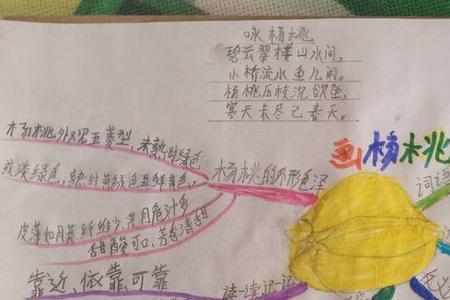 咏杨桃
碧云翠楼山水间。
小桥流水鱼儿闲。
杨桃压枝沉欲坠,
寒天未尽已春天。
画杨桃
杨桃的外形色泽
杨桃外观五菱型,未熟时绿色
或淡绿色,熟时黄绿色至鲜黄色。
皮薄如膜纤维少,果脆汁多
甜酸可口,芳香清甜
词语
读一读记一记
靠近、依靠 可靠